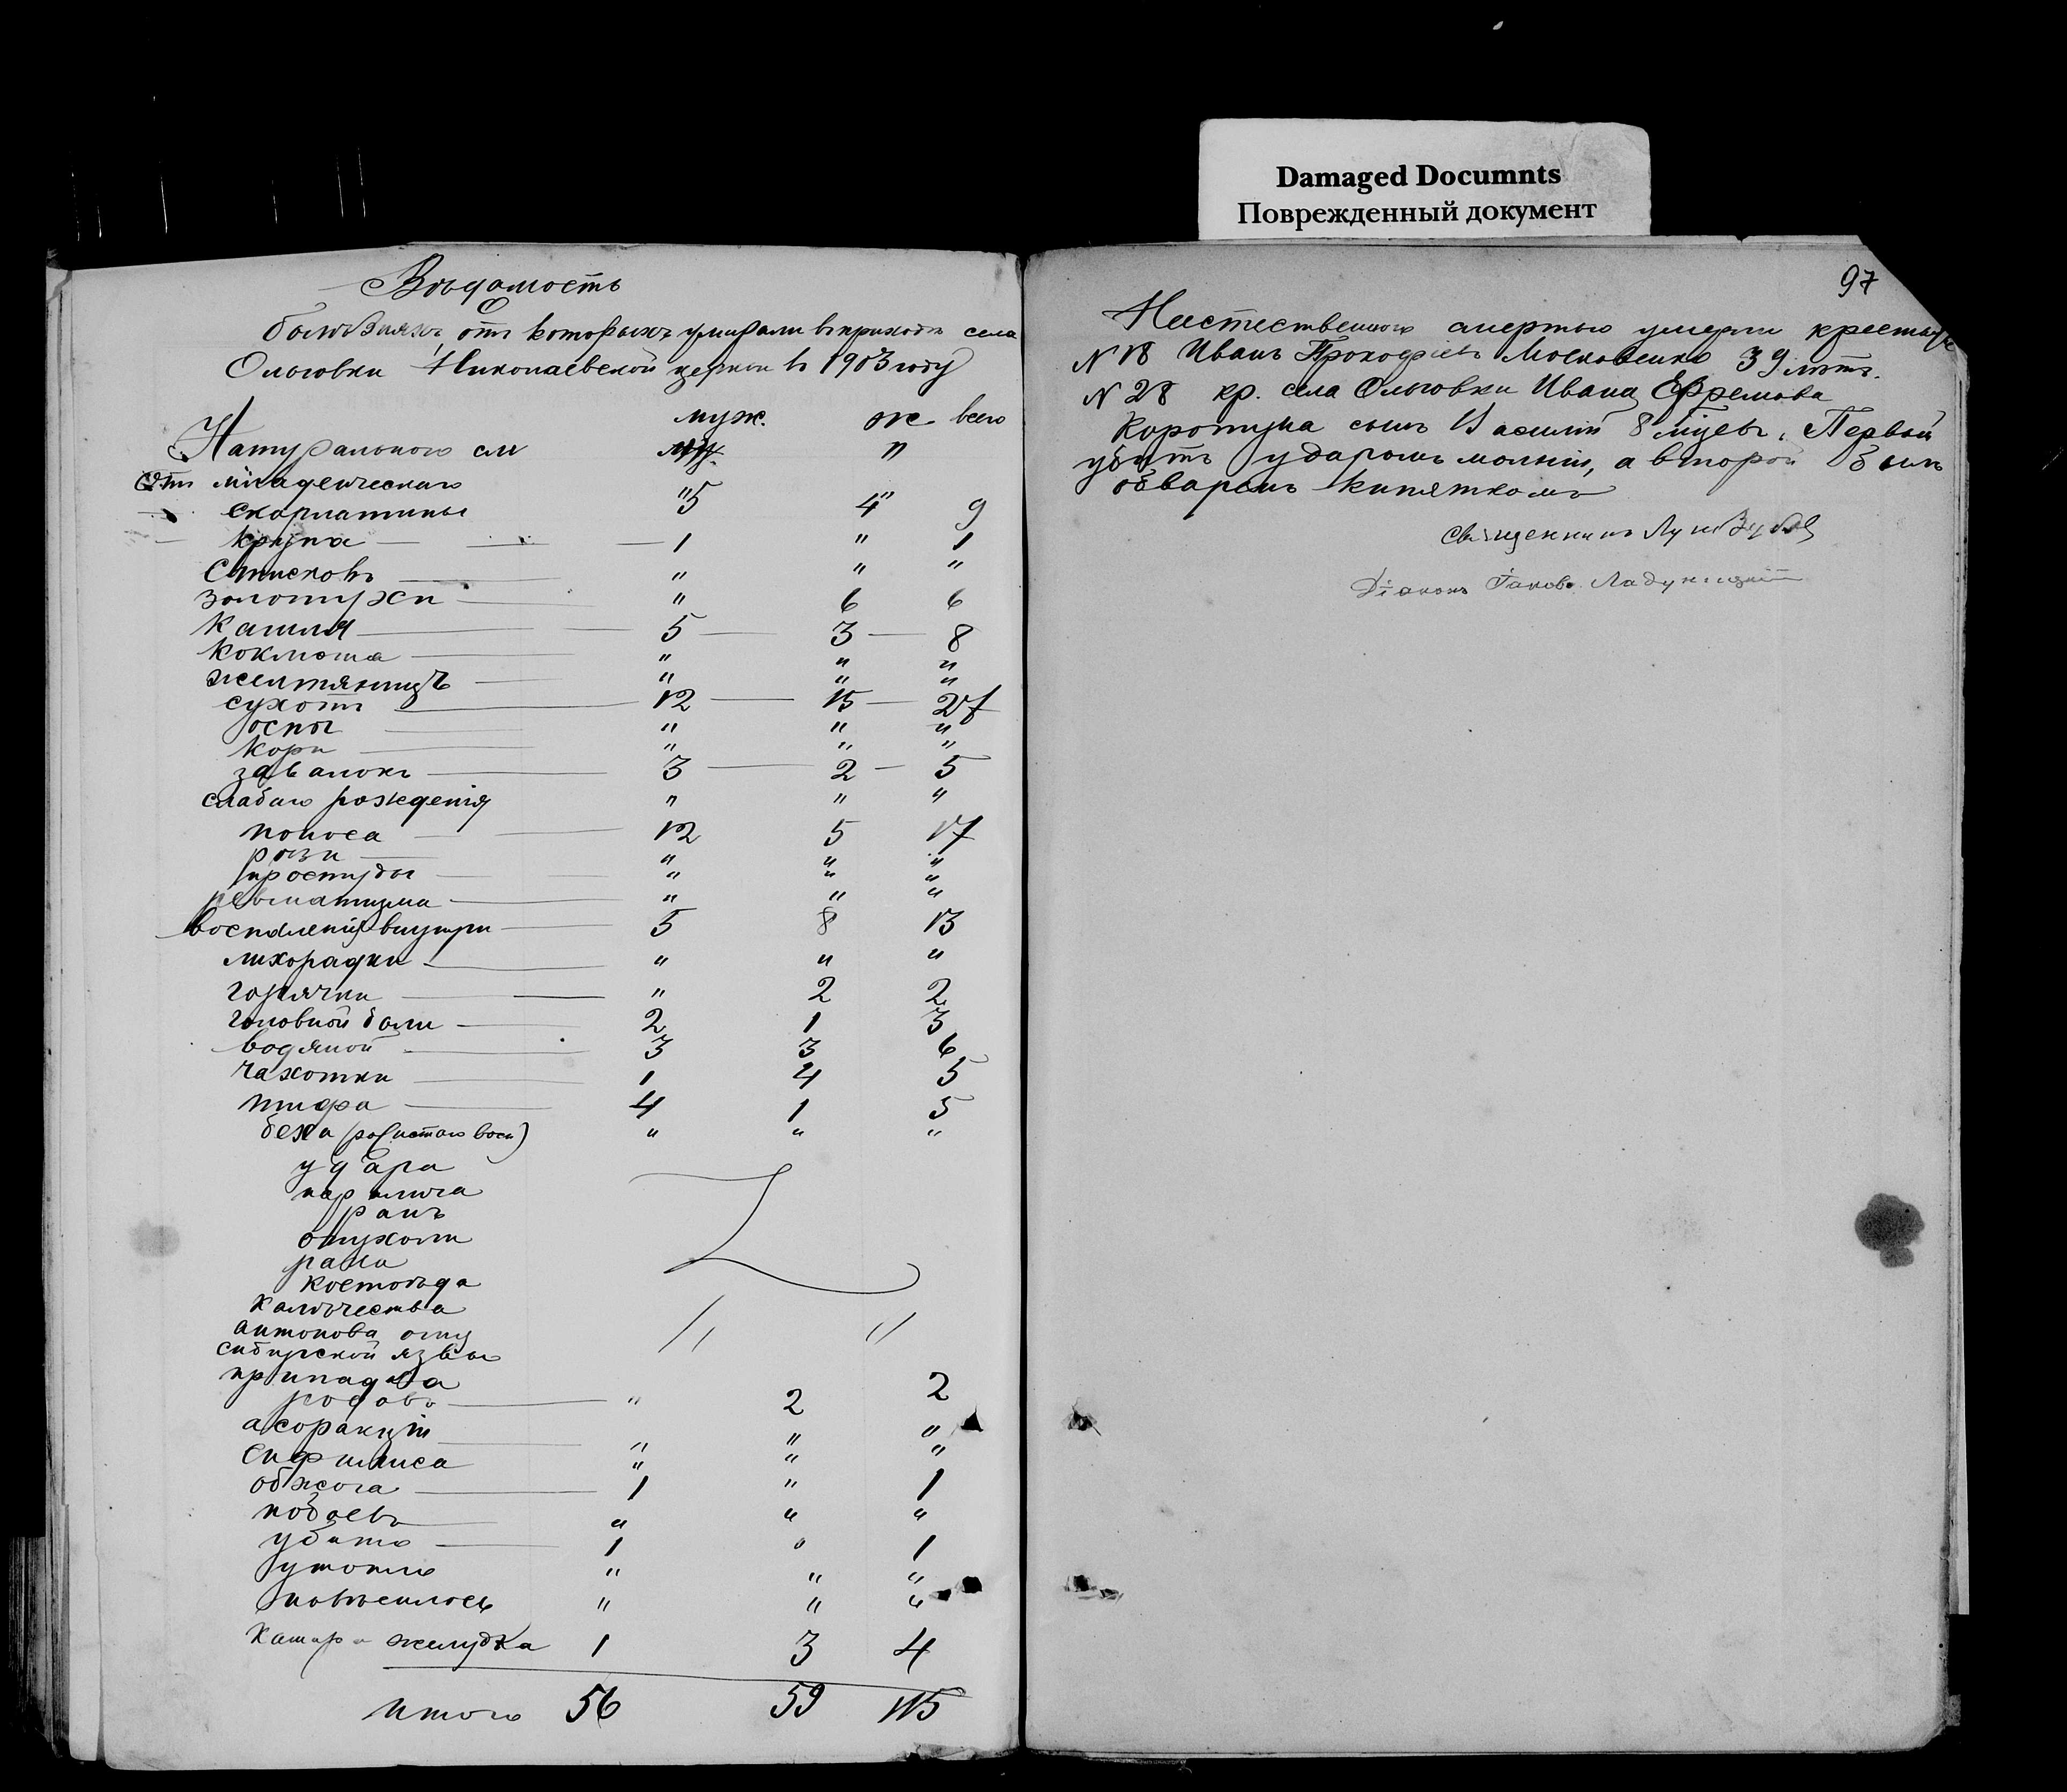 Damaged Documnts
Поврежденный документ
97
Вѣдомость
О
болѣзняхъ, отъ которыхъ умирали въ приходѣ села
Ольговки Николаевской церкви въ 1903 году
муж. ж. всего
Натуральною см "
Отъ младенческаго "5 4" 9
скарлатины
крупа 1 " 1
Списковъ " " "
золотухи " 6 6
Кашля 5 3 8
Коклюша " " "
желтяницъ " " "
сухотъ 12 15 27
оспы " " "
кори " " "
завалокъ 3 2 5
слабаго рожденія " " "
поноса 12 5 17
рожи " " "
простуды " " "
ревматизма " " "
воспаленія внутри 5 8 13
лихорадки " " "
горячки " 2 2
головной боли 2 1 3
водяной 3 3 6
чахотки 1 4 5
тифа 4 1 5
" " "
удара
паралича
ранъ
опухоли
рака
костоѣда
калѣчества
антонова огня
сибирской язвы " "
припадка
родовъ " 2 2
" " "
сифилиса " " "
обжога 1 " 1
побоевъ " " "
убито 1 " 1
утонло " " "
повѣсилось " " "
Катара желудка 1 3 4
итого 56 59 115
Неестественною смертью умерли крестьяне
N 18 Иванъ Прокофіевъ Московенко 39 лѣтъ.
N 28 кр. села Ольговки Ивана Ефремова
Коротуна сынъ Василій 8 мѣсяц. Первый
убитъ ударомъ молніи, а второй былъ
обваренъ кипяткомъ
Священникъ
Діаконъ Іаковъ